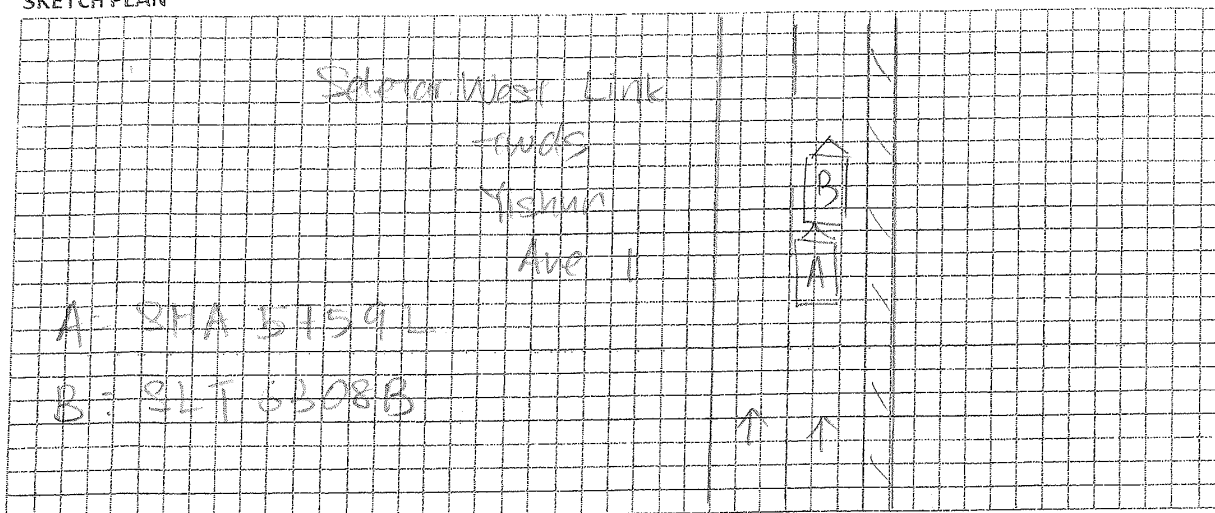 SKETCH PLAN
Seletar West Link
twds
Yishun
Ave 1
B
A
A: SHA 5759L
B: SLT 6308B